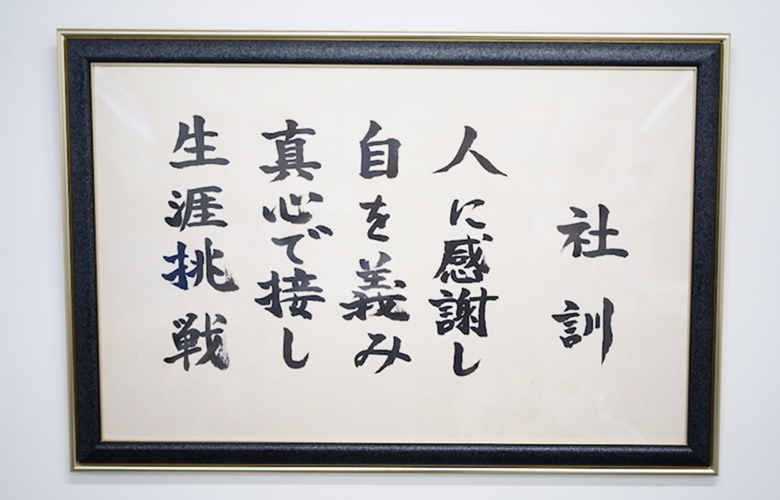 社訓
人に感謝し
自を義み
真心で接し
生涯挑戦